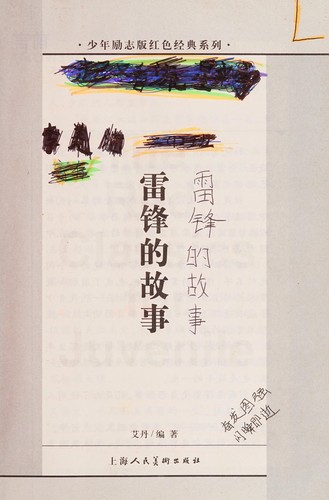 ·少年励志版红色经典系列·
雷锋的故事
雷锋的故事
奋发图强
艾丹/编著
上海人民美术出版社